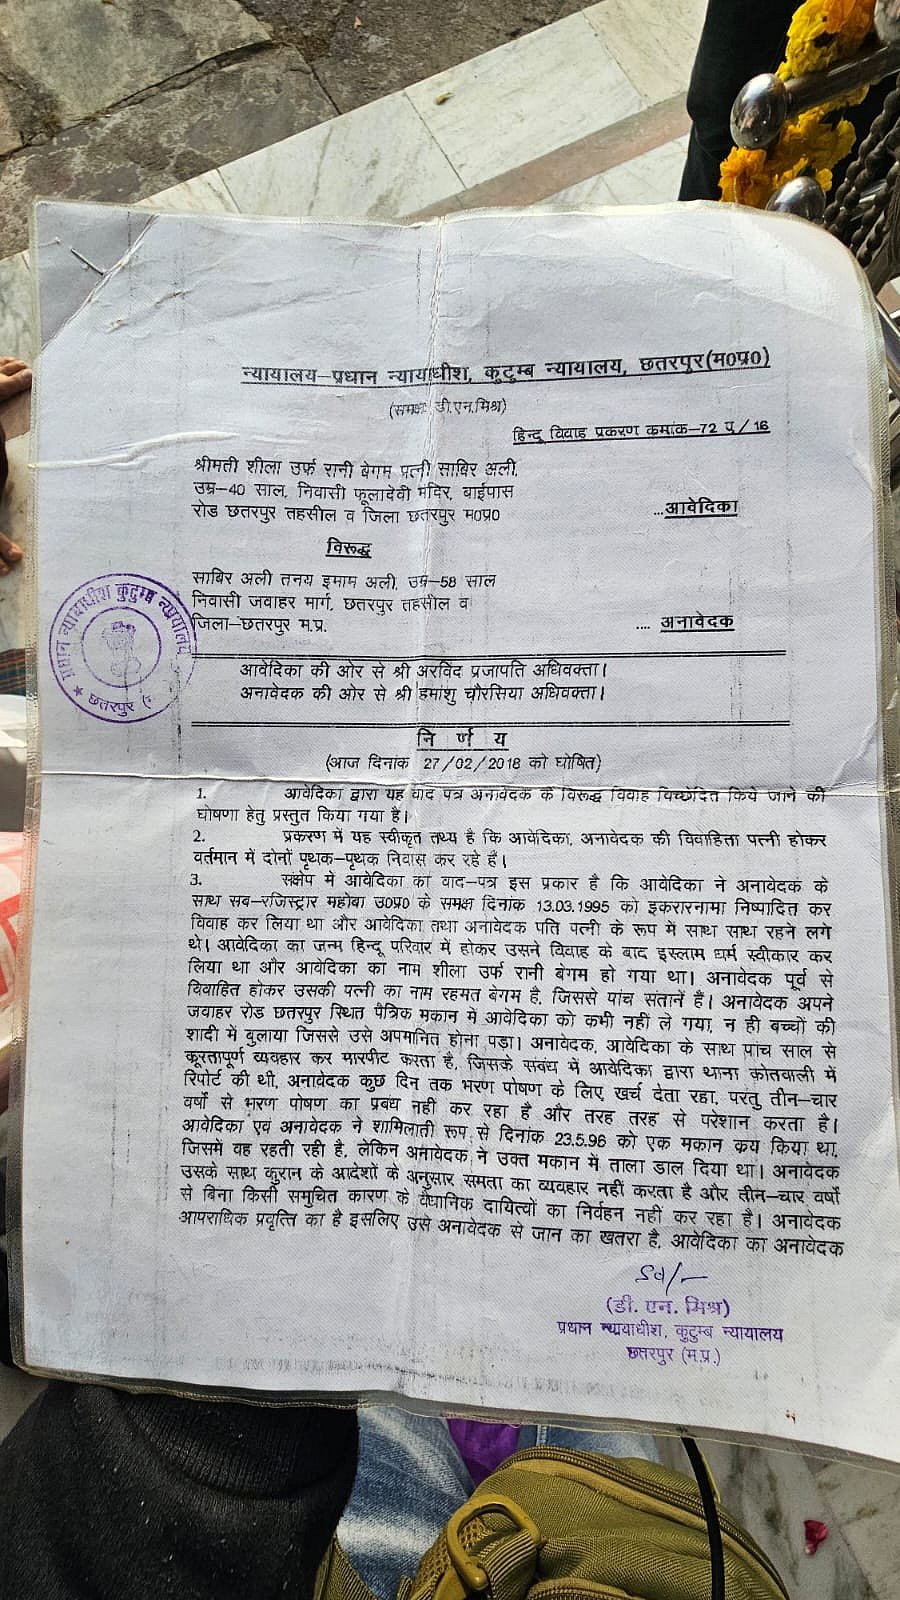 न्यायालय–प्रधान न्यायाधीश, कुटुम्ब न्यायालय, छतरपुर(म0प्र0)
(समक्ष डी.एन.मिश्र)
हिन्दू विवाह प्रकरण कमांक–72 ए/16
श्रीमती शीला उर्फ रानी बेगम पत्नी साबिर अली,
उम्र–40 साल, निवासी फूलादेवी मंदिर, बाईपास
रोड छतरपुर तहसील व जिला छतरपुर म0प्र0 ...आवेदिका
विरूद्ध
साबिर अली तनय इमाम अली, उम्र–58 साल
निवासी जवाहर मार्ग, छतरपुर तहसील व
जिला–छतरपुर म.प्र. .... अनावेदक
प्रधान न्यायाधीश कुटुम्ब न्यायालय
छतरपुर
आवेदिका की ओर से श्री अरविंद प्रजापति अधिवक्ता।
अनावेदक की ओर से श्री हमांशु चौरसिया अधिवक्ता।
नि र्ण य
(आज दिनांक 27/02/2018 को घोषित)
1. आवेदिका द्वारा यह वाद पत्र अनावेदक के विरूद्ध विवाह विच्छेदित किये जाने की
घोषणा हेतु प्रस्तुत किया गया है।
2. प्रकरण में यह स्वीकृत तथ्य है कि आवेदिका, अनावेदक की विवाहिता पत्नी होकर
वर्तमान में दोनों पृथक–पृथक निवास कर रहे हैं।
3. संक्षेप में आवेदिका का वाद–पत्र इस प्रकार है कि आवेदिका ने अनावेदक के
साथ सब–रजिस्ट्रार महोबा उ0प्र0 के समक्ष दिनांक 13.03.1995 को इकरारनामा निष्पादित कर
विवाह कर लिया था और आवेदिका तथा अनावेदक पति पत्नी के रूप में साथ साथ रहने लगे
थे। आवेदिका का जन्म हिन्दू परिवार में होकर उसने विवाह के बाद इस्लाम धर्म स्वीकार कर
लिया था और आवेदिका का नाम शीला उर्फ रानी बेगम हो गया था। अनावेदक पूर्व से
विवाहित होकर उसकी पत्नी का नाम रहमत बेगम है, जिससे पांच संतानें हैं। अनावेदक अपने
जवाहर रोड छतरपुर स्थित पैत्रिक मकान में आवेदिका को कभी नहीं ले गया, न ही बच्चों की
शादी में बुलाया जिससे उसे अपमानित होना पड़ा। अनावेदक, आवेदिका के साथ पांच साल से
कूरतापूर्ण व्यवहार कर मारपीट करता है, जिसके संबंध में आवेदिका द्वारा थाना कोतवाली में
रिपोर्ट की थी, अनावेदक कुछ दिन तक भरण पोषण के लिए खर्च देता रहा, परंतु तीन–चार
वर्षों से भरण पोषण का प्रबंध नहीं कर रहा है और तरह तरह से परेशान करता है।
आवेदिका एवं अनावेदक ने शामिलाती रूप से दिनांक 23.5.96 को एक मकान क्रय किया था,
जिसमें वह रहती रही है, लेकिन अनावेदक ने उक्त मकान में ताला डाल दिया था। अनावेदक
उसके साथ कुरान के आदेशों के अनुसार समता का व्यवहार नहीं करता है और तीन–चार वर्षों
से बिना किसी समुचित कारण के वैधानिक दायित्वों का निर्वहन नहीं कर रहा है। अनावेदक
आपराधिक प्रवृत्ति का है इसलिए उसे अनावेदक से जान का खतरा है, आवेदिका का अनावेदक
(डी. एन. मिश्र)
प्रधान न्यायाधीश, कुटुम्ब न्यायालय
छतरपुर (म.प्र.)